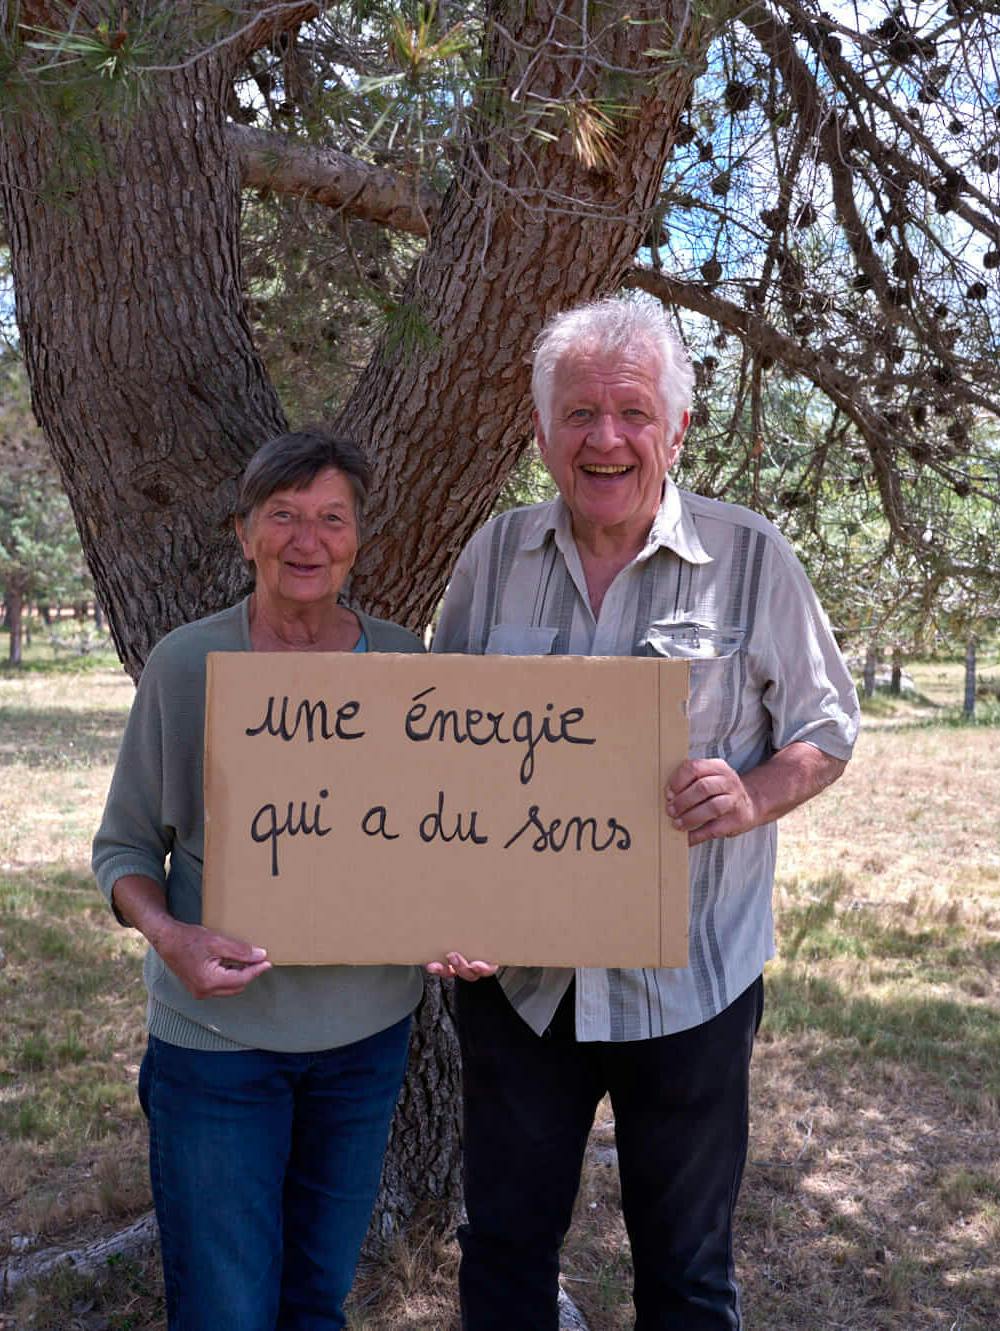 une énergie
qui a du sens